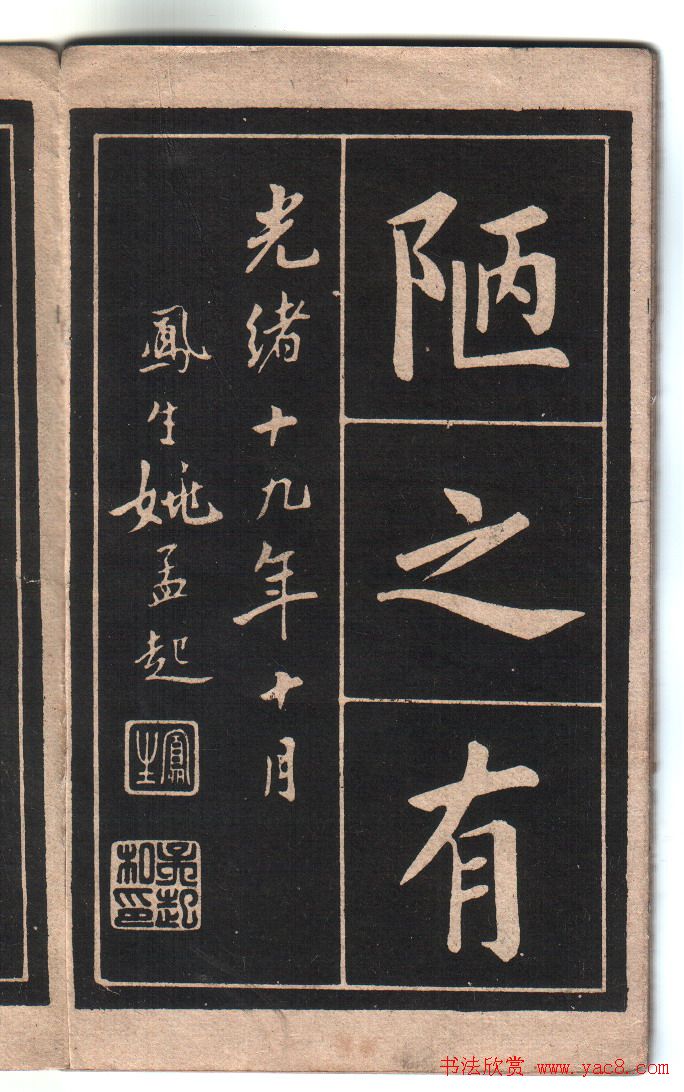 陋之有
光緒十九年十月
鳳生姚孟起
鳳生
书法欣赏 www.yac8.com